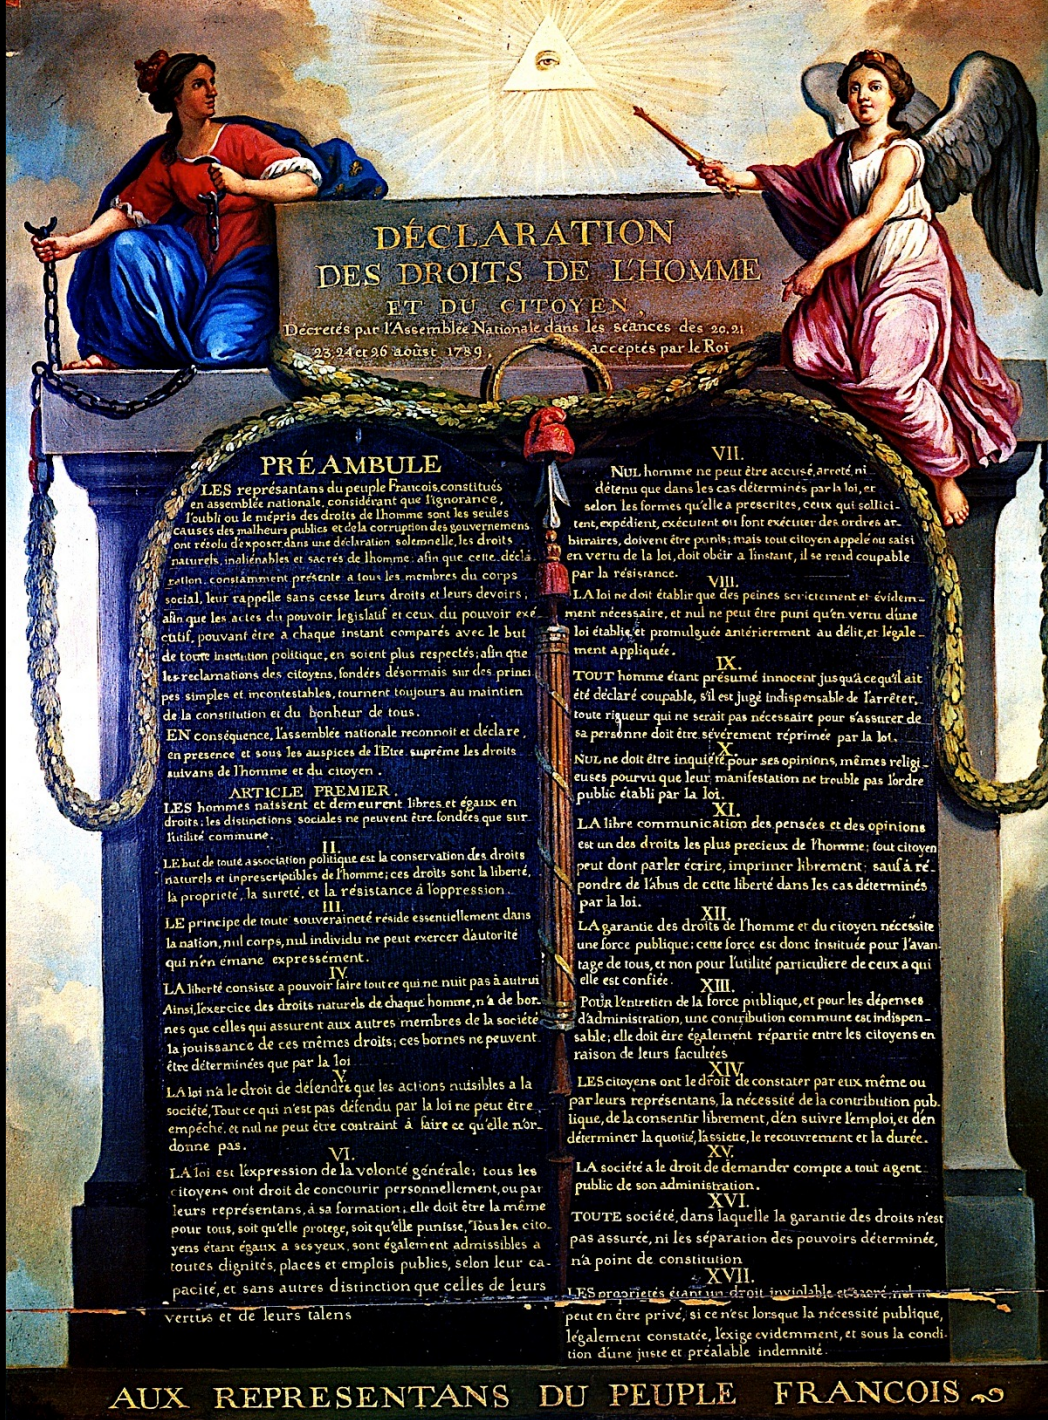 DÉCLARATION
DES DROITS DE L'HOMME
ET DU CITOYEN,
Décretés par l'Assemblée Nationale dans les séances des 20.21
23.24 et 26 aoûst 1789, acceptés par le Roi
PRÉAMBULE
LES représantans du peuple Francois, constitués
en assemblée nationale, considérant que l'ignorance,
l'oubli ou le mépris des droits de l'homme sont les seules
causes des malheurs publics et de la corruption des gouvernemens
ont résolu d'exposer dans une déclaration solemnelle, les droits
naturels, inaliénables et sacrés de lhomme: afin que cette décla-
ration, constamment présente a tous les membres du corps
social, leur rappelle sans cesse leurs droits et leurs devoirs,
afin que les actes du pouvoir legislatif et ceux du pouvoir exé-
cutif, pouvant être a chaque instant comparés avec le but
de toute institution politique, en soient plus respectés; afin que
les reclamations des citoyens, fondées désormais sur des princi
pes simples et incontestables, tournent toujours au maintien
de la constitution et du bonheur de tous.
EN conséquence, l'assemblée nationale reconnoit et déclare,
en presence et sous les auspices de l'Etre suprême les droits
suivans de l'homme et du citoyen.
ARTICLE PREMIER.
LES hommes naissent et demeurent libres et égaux en
droits; les distinctions sociales ne peuvent être fondées que sur
l'utilité commune.
II.
LE but de toute association politique est la conservation des droits
naturels et inprescriptibles de l'homme; ces droits sont la liberté,
la propriété, la sureté, et la résistance à l'oppression.
III.
LE principe de toute souveraineté réside essentiellement dans
la nation, nul corps, nul individu ne peut exercer d'autorité
qui n'en émane expressément.
IV.
LA liberté consiste a pouvoir faire tout ce qui ne nuit pas à autrui
Ainsi, l'exercice des droits naturels de chaque homme, n'a de bor-
nes que celles qui assurent aux autres membres de la société
la jouissance de ces mêmes droits; ces bornes ne peuvent
être déterminées que par la loi
V.
LA loi n'a le droit de défendre que les actions nuisibles a la
société, Tout ce qui n'est pas défendu par la loi ne peut être
empêché, et nul ne peut être contraint à faire ce qu'elle n'or-
donne pas.
VI.
LA loi est l'expression de la volonté générale; tous les
citoyens ont droit de concourir personnellement, ou par
leurs représentans, à sa formation; elle doit être la même
pour tous, soit qu'elle protege, soit qu'elle punisse, Tous les cito-
yens étant égaux a ses yeux, sont également admissibles a
toutes dignités, places et emplois publics, selon leur ca-
pacité, et sans autres distinction que celles de leurs
vertus et de leurs talens
VII.
NUL homme ne peut être accusé, arreté, ni
détenu que dans les cas déterminés par la loi, et
selon les formes qu'elle a prescrites, ceux qui sollici-
tent, expédient, exécutent ou font exécuter des ordres ar-
bitraires, doivent être punis; mais tout citoyen appelé ou saisi
en vertu de la loi, doit obéir a l'instant, il se rend coupable
par la résistance.
VIII.
LA loi ne doit établir que des peines strictement et évidem-
ment nécessaire, et nul ne peut être puni qu'en vertu d'une
loi établie et promulguée antérierement au délit, et légale-
ment appliquée.
IX.
TOUT homme étant présumé innocent jusqu'a ce qu'il ait
été déclaré coupable, s'il est jugé indispensable de l'arrêter,
toute rigueur qui ne serait pas nécessaire pour s'assurer de
sa personne doit être sévèrement réprimée par la loi.
X.
NUL ne doit être inquiété pour ses opinions, mêmes religi-
euses pourvu que leur manifestation ne trouble pas l'ordre
public établi par la loi.
XI.
LA libre communication des pensées et des opinions
est un des droits les plus precieux de l'homme; tout citoyen
peut dont parler écrire, imprimer librement; sauf à ré-
pondre de l'abus de cette liberté dans les cas déterminés
par la loi.
XII.
LA garantie des droits de l'homme et du citoyen nécessite
une force publique; cette force est donc instituée pour l'avan-
tage de tous, et non pour l'utilité particuliere de ceux a qui
elle est confiée.
XIII.
POUR l'entretien de la force publique, et pour les dépenses
d'administration, une contribution commune est indispen-
sable; elle doit être également répartie entre les citoyens en
raison de leurs facultées
XIV.
LES citoyens ont le droit de constater par eux même ou
par leurs représentans, la nécessité de la contribution pub-
lique, de la consentir librement, d'en suivre l'emploi, et d'en
déterminer la quotité, l'assiette, le recouvrement et la durée.
XV.
LA société a le droit de demander compte a tout agent
public de son administration.
XVI.
TOUTE société, dans laquelle la garantie des droits n'est
pas assurée, ni les séparation des pouvoirs déterminée,
n'a point de constitution
XVII.
LES proprietés étant un droit inviolable et sacré, nul ne
peut en être privé, si ce n'est lorsque la nécessité publique,
légalement constatée, l'exige evidemment, et sous la condi-
tion d'une juste et préalable indemnité.
AUX REPRESENTANS DU PEUPLE FRANCOIS